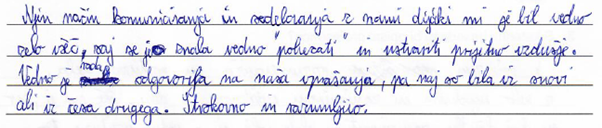 Njen način komuniciranja in sodelovanja z nami dijaki mi je bil vedno
zelo všeč, saj se je znala vedno "pohecati" in ustvariti prijetno vzdušje.
Vedno je rada odgovorila na naša vprašanja, pa naj so bila iz snovi
ali iz česa drugega. Strokovno in razumljivo.